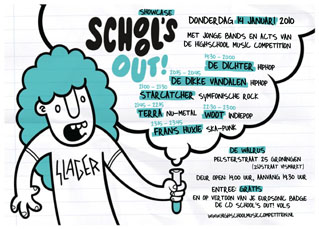 SHOWCASE
SCHOOL'S
OUT!
DONDERDAG 14 JANUARI 2010
MET JONGE BANDS EN ACTS VAN
DE HIGHSCHOOL MUSIC COMPETITION
19:30 - 20:00
DE DICHTER, HIPHOP
20:15 - 20:45
DE DIKKE VANDALEN, HIPHOP
21:00 - 21:30
STARCATCHER SYMFONISCHE ROCK
21:45 - 22:15
TERRA NU-METAL
22:30 - 23:00
WOOT INDIEPOP
23:15 - 23:45
FRANS HUXIE SKA-PUNK
SLAGER
DE WALRUS
PELSTERSTRAAT 15 GRONINGEN
(ZIJSTRAAT VISMARKT)
DEUR OPEN 19.00 UUR, AANVANG 19.30 UUR
ENTREE: GRATIS
EN OP VERTOON VAN JE EUROSONIC BADGE
DE CD SCHOOL'S OUT! VOL5
WWW.HIGHSCHOOLMUSICCOMPETITION.NL